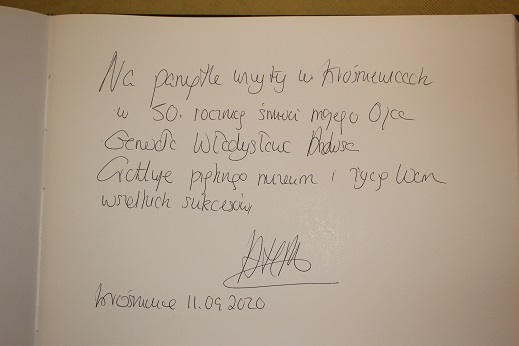 Na pamiątkę wizyty w Krośniewicach
w 50. rocznicę śmierci mojego Ojca
Generała Władysława
Gratuluję pięknego muzeum i życzę Wam
wszelkich sukcesów,
Krośniewice 11.09.2020